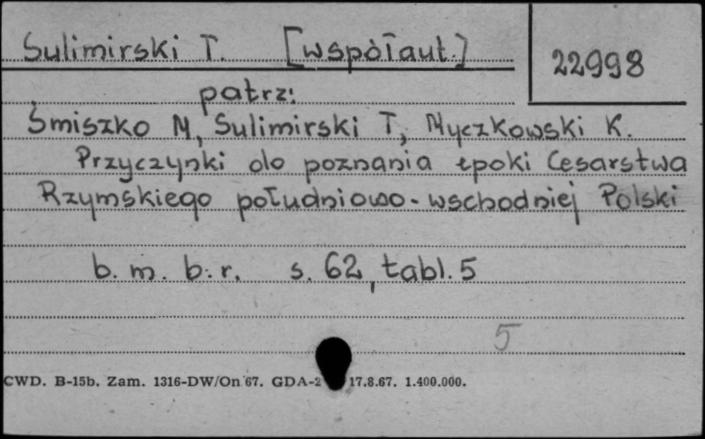 Sulimirski T. [współaut.]
22998
patrz:
Śmiszko M, Sulimirski T, Myczkowski K.
Przyczynki do poznania epoki Cesarstwa
Rzymskiego południowo-wschodniej Polski
b. m. b. r. s. 62, tabl. 5
5
CWD. B-15b. Zam. 1316-DW/On 67. GDA-2 17.8.67. 1.400.000.